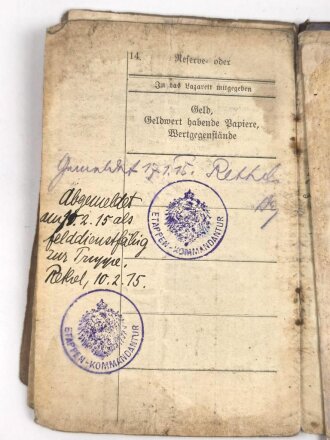 14. Reserve- oder
In das Lazarett mitgegeben
Geld,
Geldwert habende Papiere,
Wertgegenstände
Gemeldet 17.1.15. Rethel
Abgemeldet
am 10.2.15 als
felddienstfähig
zur Truppe.
10.2.15.
ETAPPEN-KOMMANDANTUR
ETAPPEN-KOMMANDANTUR